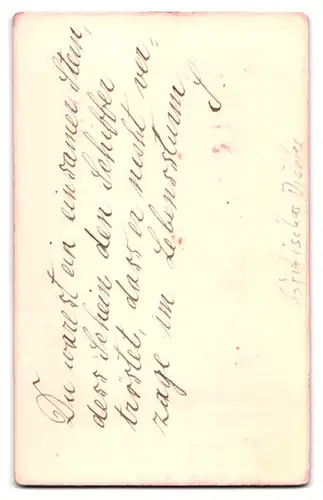 Du warest ein einsamer Stern,
dess Schein den Schiffer
tröstet, dass er nicht ver-
zage im Lebenssturm
S.